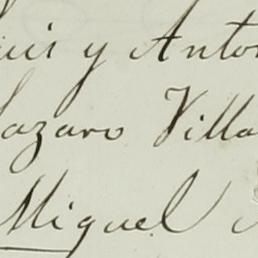 uis y Anto
Lazaro Villa
Miguel